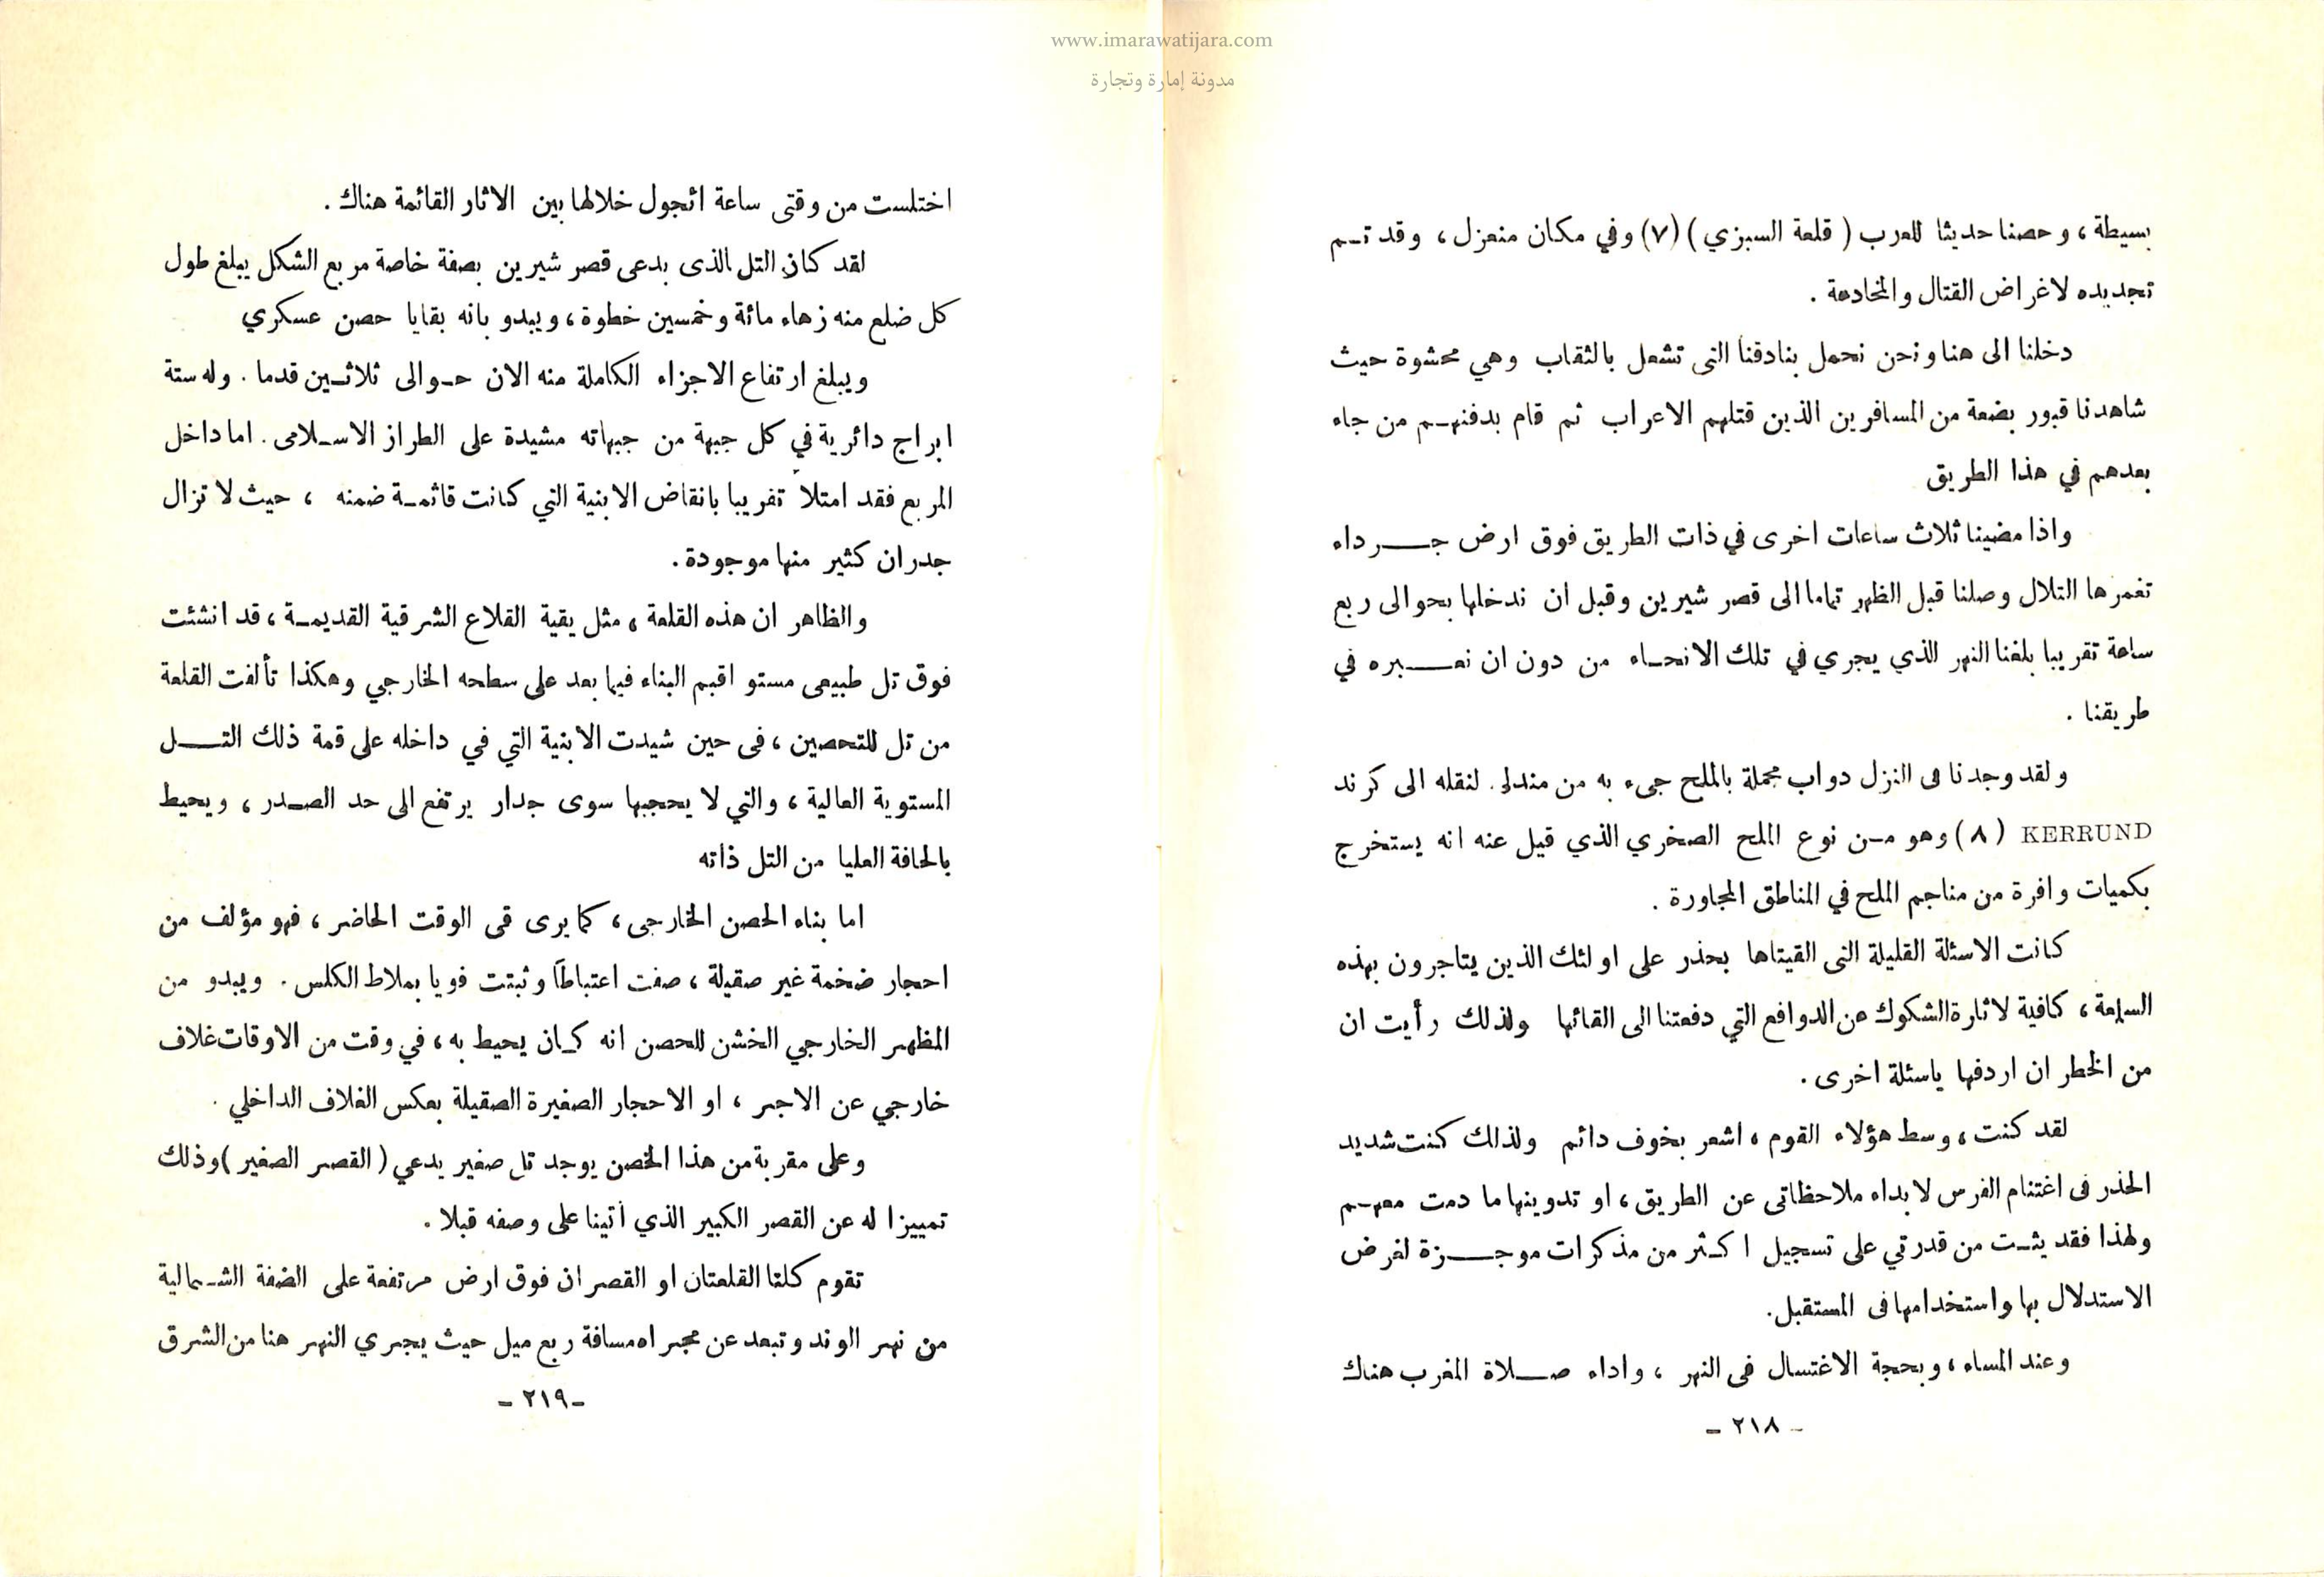 www.imarawatijara.com
مدونة إمارة وتجارة
بسيطة ، وحصنا حديثا للعرب ( قلعة السبزي ) (٧) وفي مكان منعزل ، وقد تـم
تجديده لاغراض القتال والمخادعة .
دخلنا الى هنا ونحن نحمل بنادقنا التى تشعل بالثقاب وهي محشوة حيث
شاهدنا قبور بضعة من المسافرين الذين قتلهم الاعراب ثم قام بدفنهـم من جاء
بعدهم في هذا الطريق
واذا مضينا ثلاث ساعات اخرى في ذات الطريق فوق ارض جـــرداء
تغمرها التلال وصلنا قبل الظهر تماما الى قصر شيرين وقبل ان ندخلها بحوالى ربع
ساعة تقريبا بلغنا النهر الذي يجري في تلك الانحـاء من دون ان نعـــبره في
طريقنا .
ولقد وجدنا فى النزل دواب محملة بالملح جىء به من مندلى. لنقله الى كرند
KERRUND (٨) وهو مـن نوع الملح الصخري الذي قيل عنه انه يستخرج
بكميات وافرة من مناجم الملح في المناطق المجاورة .
كانت الاسئلة القليلة التى القيتاها بحذر على اولئك الذين يتاجرون بهذه
السلعة ، كافية لاثارة الشكوك عن الدوافع التي دفعتنا الى القائها ولذلك رأيت ان
من الخطر ان اردفها ياسئلة اخرى .
لقد كنت ، وسط هؤلاء القوم ، اشعر بخوف دائم ولذلك كنت شديد
الحذر فى اغتنام الفرس لابداء ملاحظاتى عن الطريق ، او تدوينها ما دمت معهـم
ولهذا فقد يئـت من قدرتي على تسجيل اكـثر من مذكرات موجـــزة لغرض
الاستدلال بها واستخدامها فى المستقبل.
وعند المساء ، وبحجة الاغتسال فى النهر ، واداء صـــلاة المغرب هناك
- ٢١٨ -
اختلست من وقتى ساعة اتجول خلالها بين الاثار القائمة هناك .
لقد كان التل الذى يدعى قصر شيرين بصفة خاصة مربع الشكل يبلغ طول
كل ضلع منه زهاء مائة وخمسين خطوة ، ويبدو بانه بقايا حصن عسكري
ويبلغ ارتفاع الاجزاء الكاملة منه الان حـوالى ثلاثـين قدما . وله ستة
ابراج دائرية في كل جبهة من جبهاته مشيدة على الطراز الاسـلامى . اما داخل
المربع فقد امتلأ تفريبا بانقاض الابنية التي كانت قائمـة ضمنه ، حيث لا تزال
جدران كثير منها موجودة .
والظاهر ان هذه القلعة ، مثل يقية القلاع الشرقية القديمـة ، قد انشئت
فوق تل طبيعى مستو اقيم البناء فيما بعد على سطحه الخارجي وهكذا تألفت القلعة
من تل للتحصين ، فى حين شيدت الابنية التي في داخله على قمة ذلك التـــل
المستوية العالية ، والتي لا يحجبها سوى جدار يرتفع الى حد الصـدر ، ويحيط
بالحافة العليا من التل ذاته
اما بناء الحصن الخارجى ، كما يرى قى الوقت الحاضر ، فهو مؤلف من
احجار ضخمة غير صقيلة ، صفت اعتباطاً وثبتت قويا بملاط الكلس . ويبدو من
المظهر الخارجي الخشن للحصن انه كـان يحيط به ، في وقت من الاوقات غلاف
خارجي عن الاجر ، او الاحجار الصغيرة الصقيلة بعكس الغلاف الداخلي .
وعلى مقربة من هذا الخصن يوجد تل صغير يدعي ( القصر الصغير ) وذلك
تمييزا له عن القصر الكبير الذي أتينا على وصفه قبلا .
تقوم كلتا القلعتان او القصران فوق ارض مرتفعة على الضفة الشـمالية
من نهر الوند وتبعد عن مجراه مسافة ربع ميل حيث يجري النهر هنا من الشرق
- ٢١٩ -